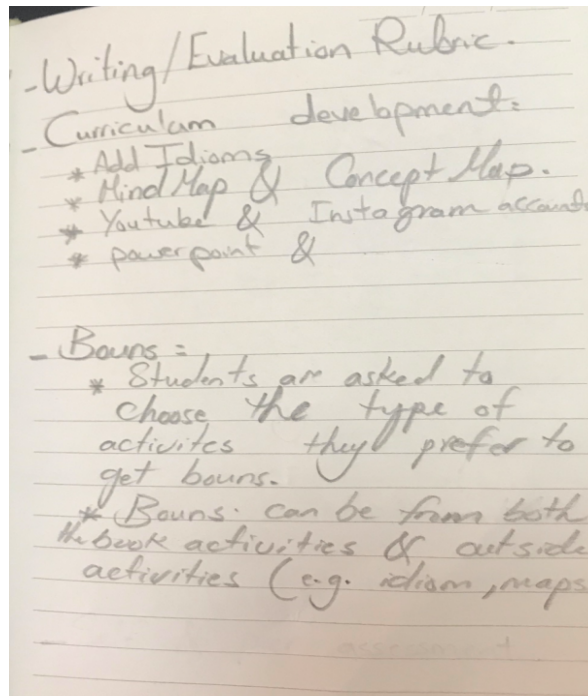 - Writing/Evaluation Rubric.
- Curriculam development:
* Add Idioms
* Mind Map & Concept Map.
* Youtube & Instagram accounts
* powerpoint &
- Bouns:
* Students are asked to
choose the type of
activites they prefer to
get bouns.
* Bouns. can be from both
the book activities & outside
activities (e.g. idiom, maps